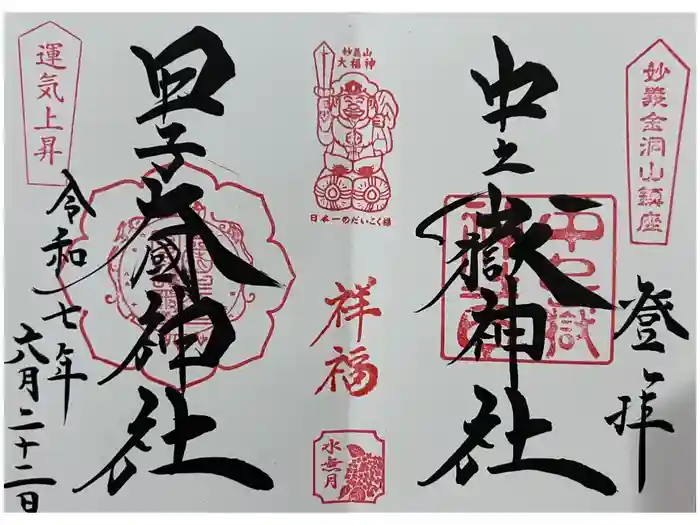 妙義金洞山鎮座
登拝
中之嶽神社
妙義山
大福神
日本一のだいこく様
祥福
水無月
甲子大國神社
運気上昇
令和七年
六月二十二日